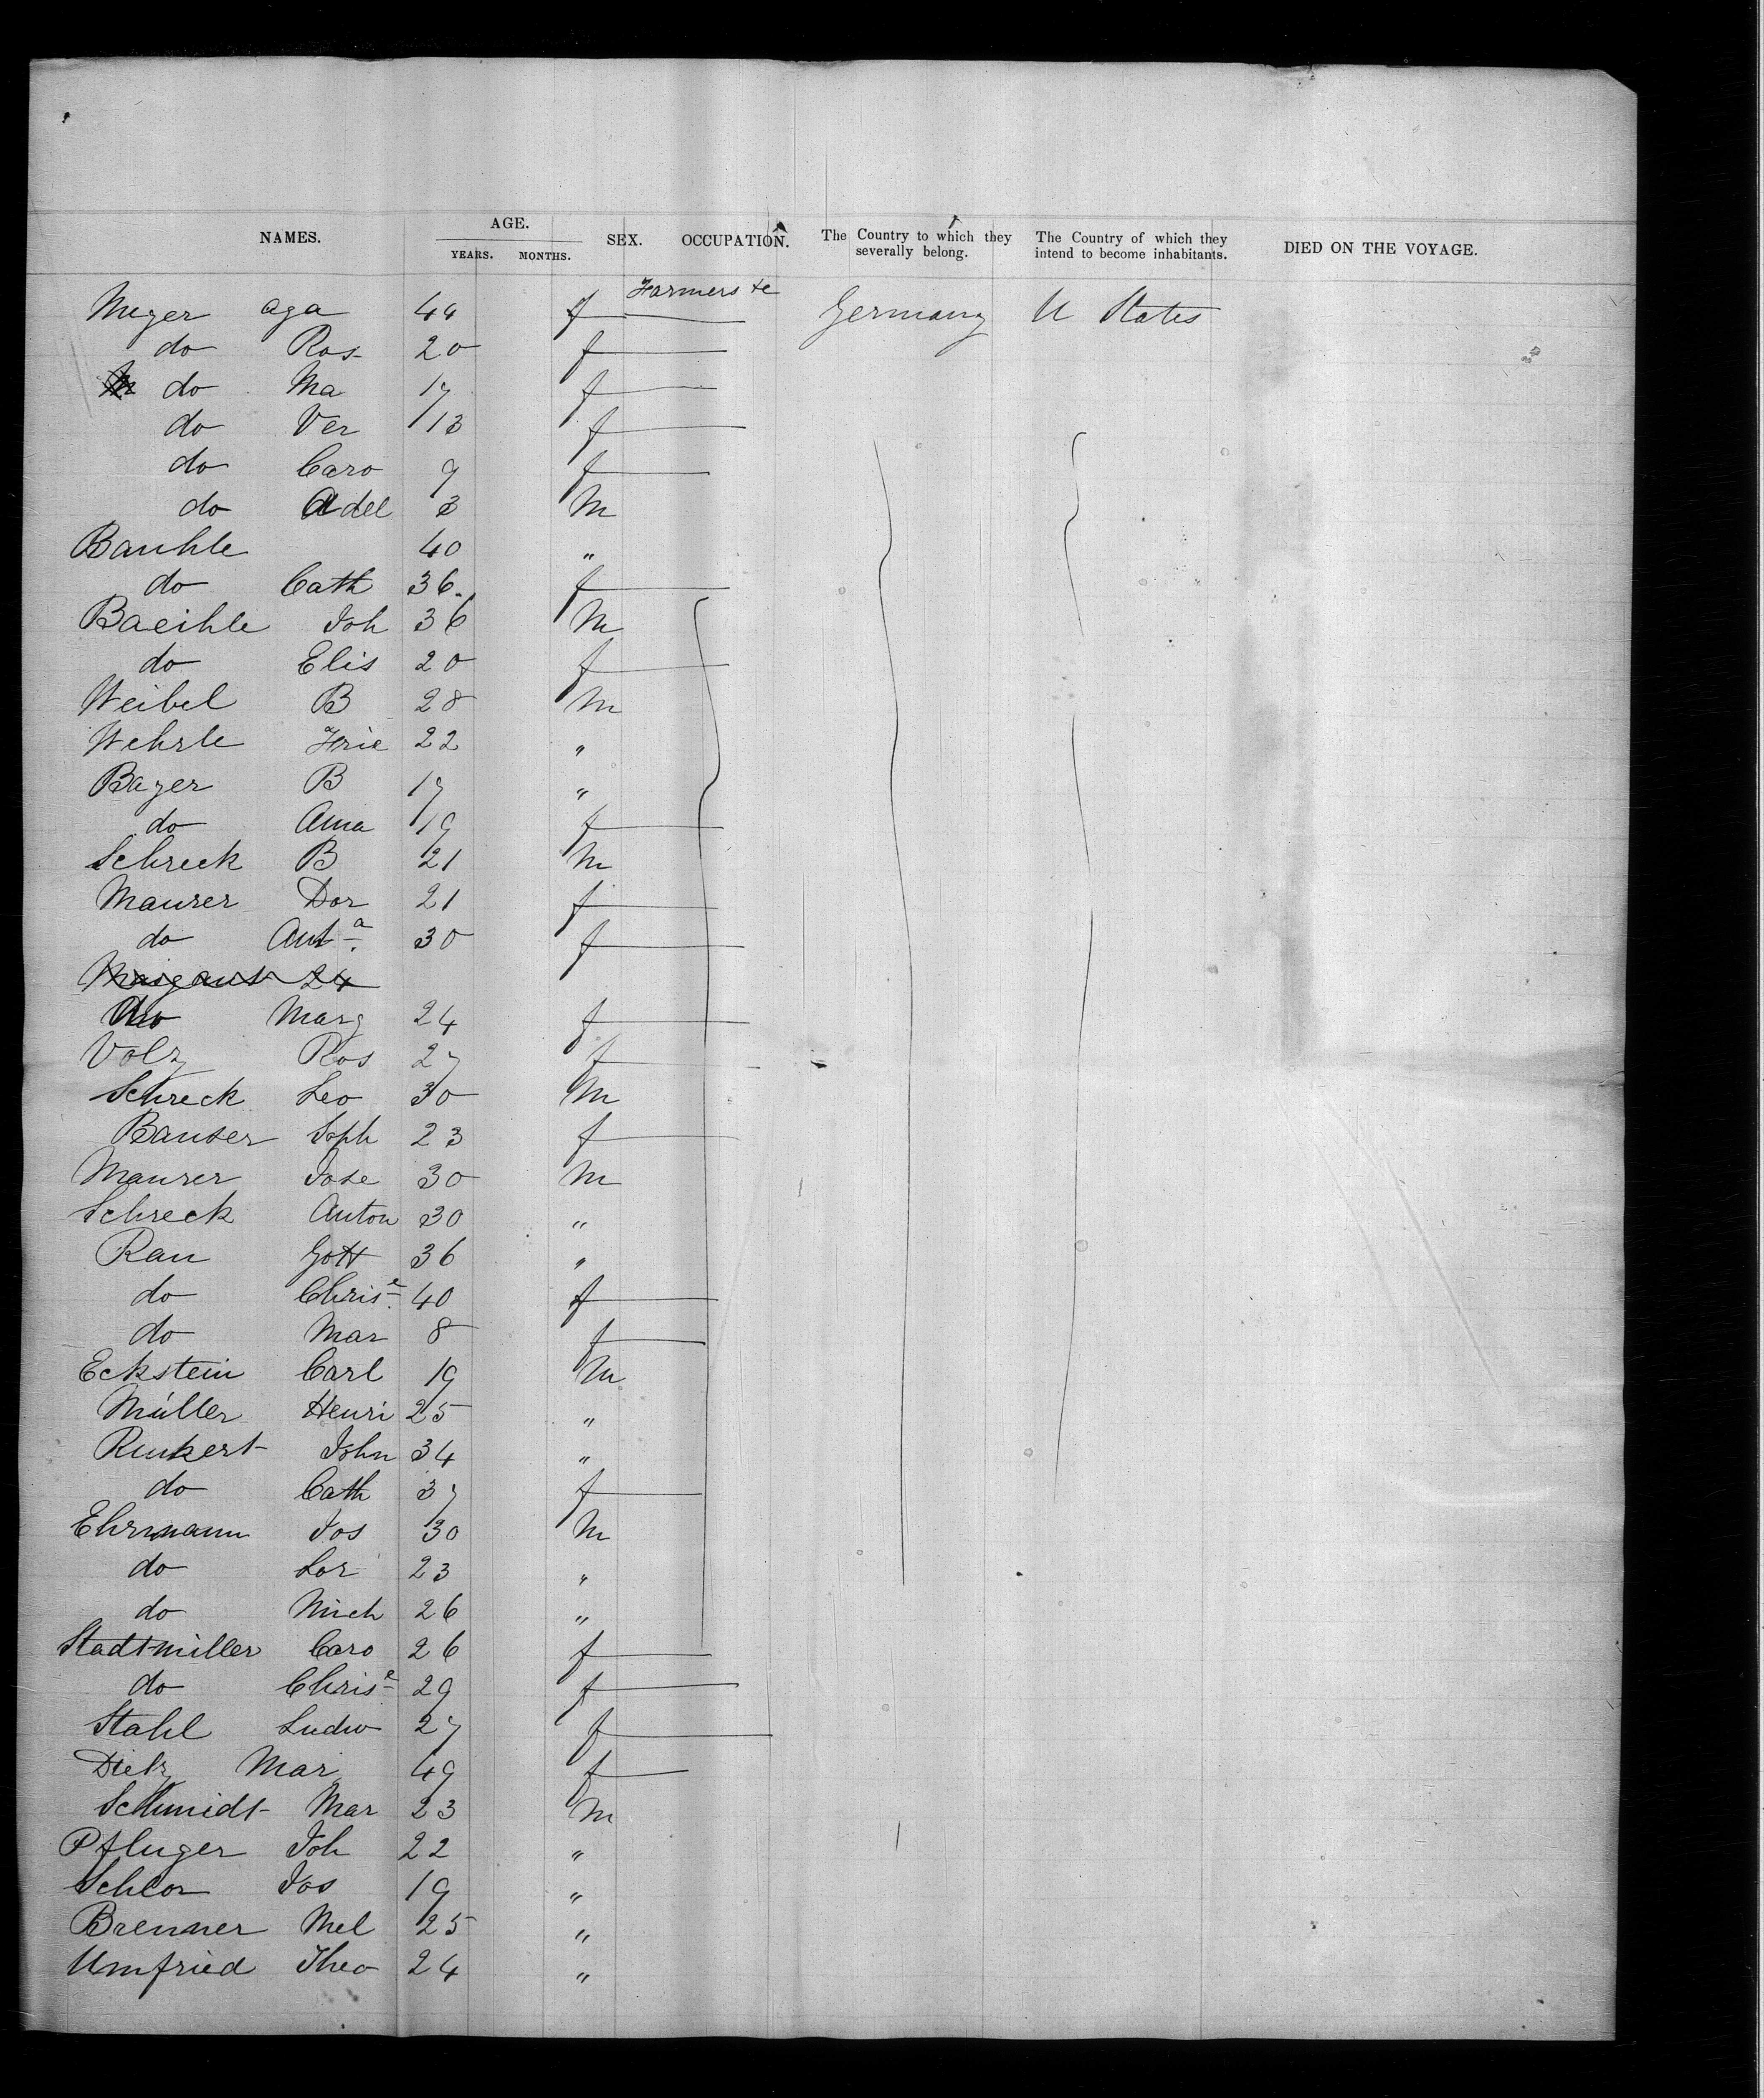 NAMES. AGE. YEARS. MONTHS. SEX. OCCUPATION. The Country to which they severally belong. The Country of which they intend to become inhabitants. DIED ON THE VOYAGE.
Farmers &c
Meyer aga 44 f Germany U States
do Ros 20 f
do Ma 17 f
do Ver 13 f
do Caro 9 f
do Adel 3 M
Bauhle 40 "
do Cath 36 f
Baeihle Joh 36 M
do Elis 20 f
Weibel B 28 M
Wehrle Frie 22 "
Bayer B 17 "
do Anna 19 f
Schreck B 21 M
Maurer Dor 21 f
do Anta 30 f
do Marg 24 f
Volz Ros 27 f
Schreck Leo 30 M
Bauser Soph 23 f
Maurer Jose 30 M
Schreck Anton 30 "
Rau Gott 36 "
do Chrise 40 f
do Mar 8 f
Eckstein Carl 19 M
Müller Henri 25 "
Runkert John 34 "
do Cath 37 f
Ehrmann Jos 30 M
do Lor 23 "
do Mich 26 "
Stadtmiller Caro 26 f
do Chrise 29 f
Stahl Ludw 27 f
Dietz Mar 49 f
Schmidt Mar 23 M
Pfluger Joh 22 "
Schlor Jos 19 "
Brenner Mel 25 "
Umfried Theo 24 "